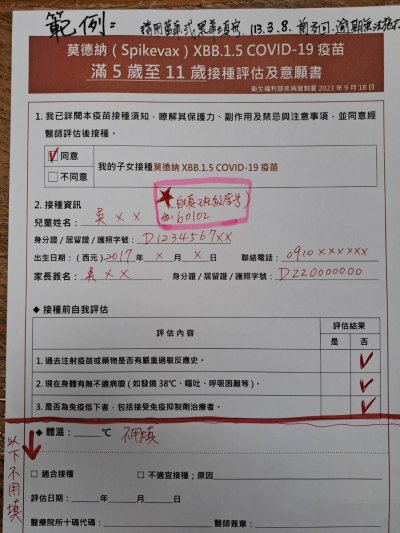 範例： 請用藍筆或黑筆填寫，113.3.8. 前交回，逾期無法施打
莫德納（Spikevax）XBB.1.5 COVID-19 疫苗
滿 5 歲至 11 歲接種評估及意願書
衛生福利部疾病管制署 2023 年 9 月 18 日
1. 我已詳閱本疫苗接種須知，瞭解其保護力、副作用及禁忌與注意事項，並同意經
醫師評估後接種。
☑同意
□不同意
我的子女接種莫德納 XBB.1.5 COVID-19 疫苗
2. 接種資訊
★(自填班級座號)
60102
兒童姓名：吳××
身分證 / 居留證 / 護照字號：D1234567××
出生日期：(西元) 2017 年 × 月 × 日 聯絡電話：0910××××××
家長簽名：吳×× 身分證 / 居留證 / 護照字號：D220000000
◆ 接種前自我評估
評 估 內 容 評估結果
是 否
1. 過去注射疫苗或藥物是否有嚴重過敏反應史。 ✓
2. 現在身體有無不適病徵 ( 如發燒 38℃、嘔吐、呼吸困難等 )。 ✓
3. 是否為免疫低下者，包括接受免疫抑制劑治療者。 ✓
以下不用填
◆ 體溫：____℃ 不用填
□ 適合接種 □ 不適宜接種；原因
評估日期：____年____月____日
醫療院所十碼代碼： 醫師簽章：